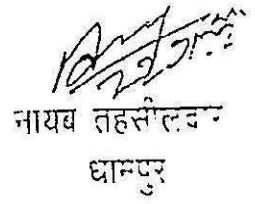 नायब तहसीलदार
धामपुर